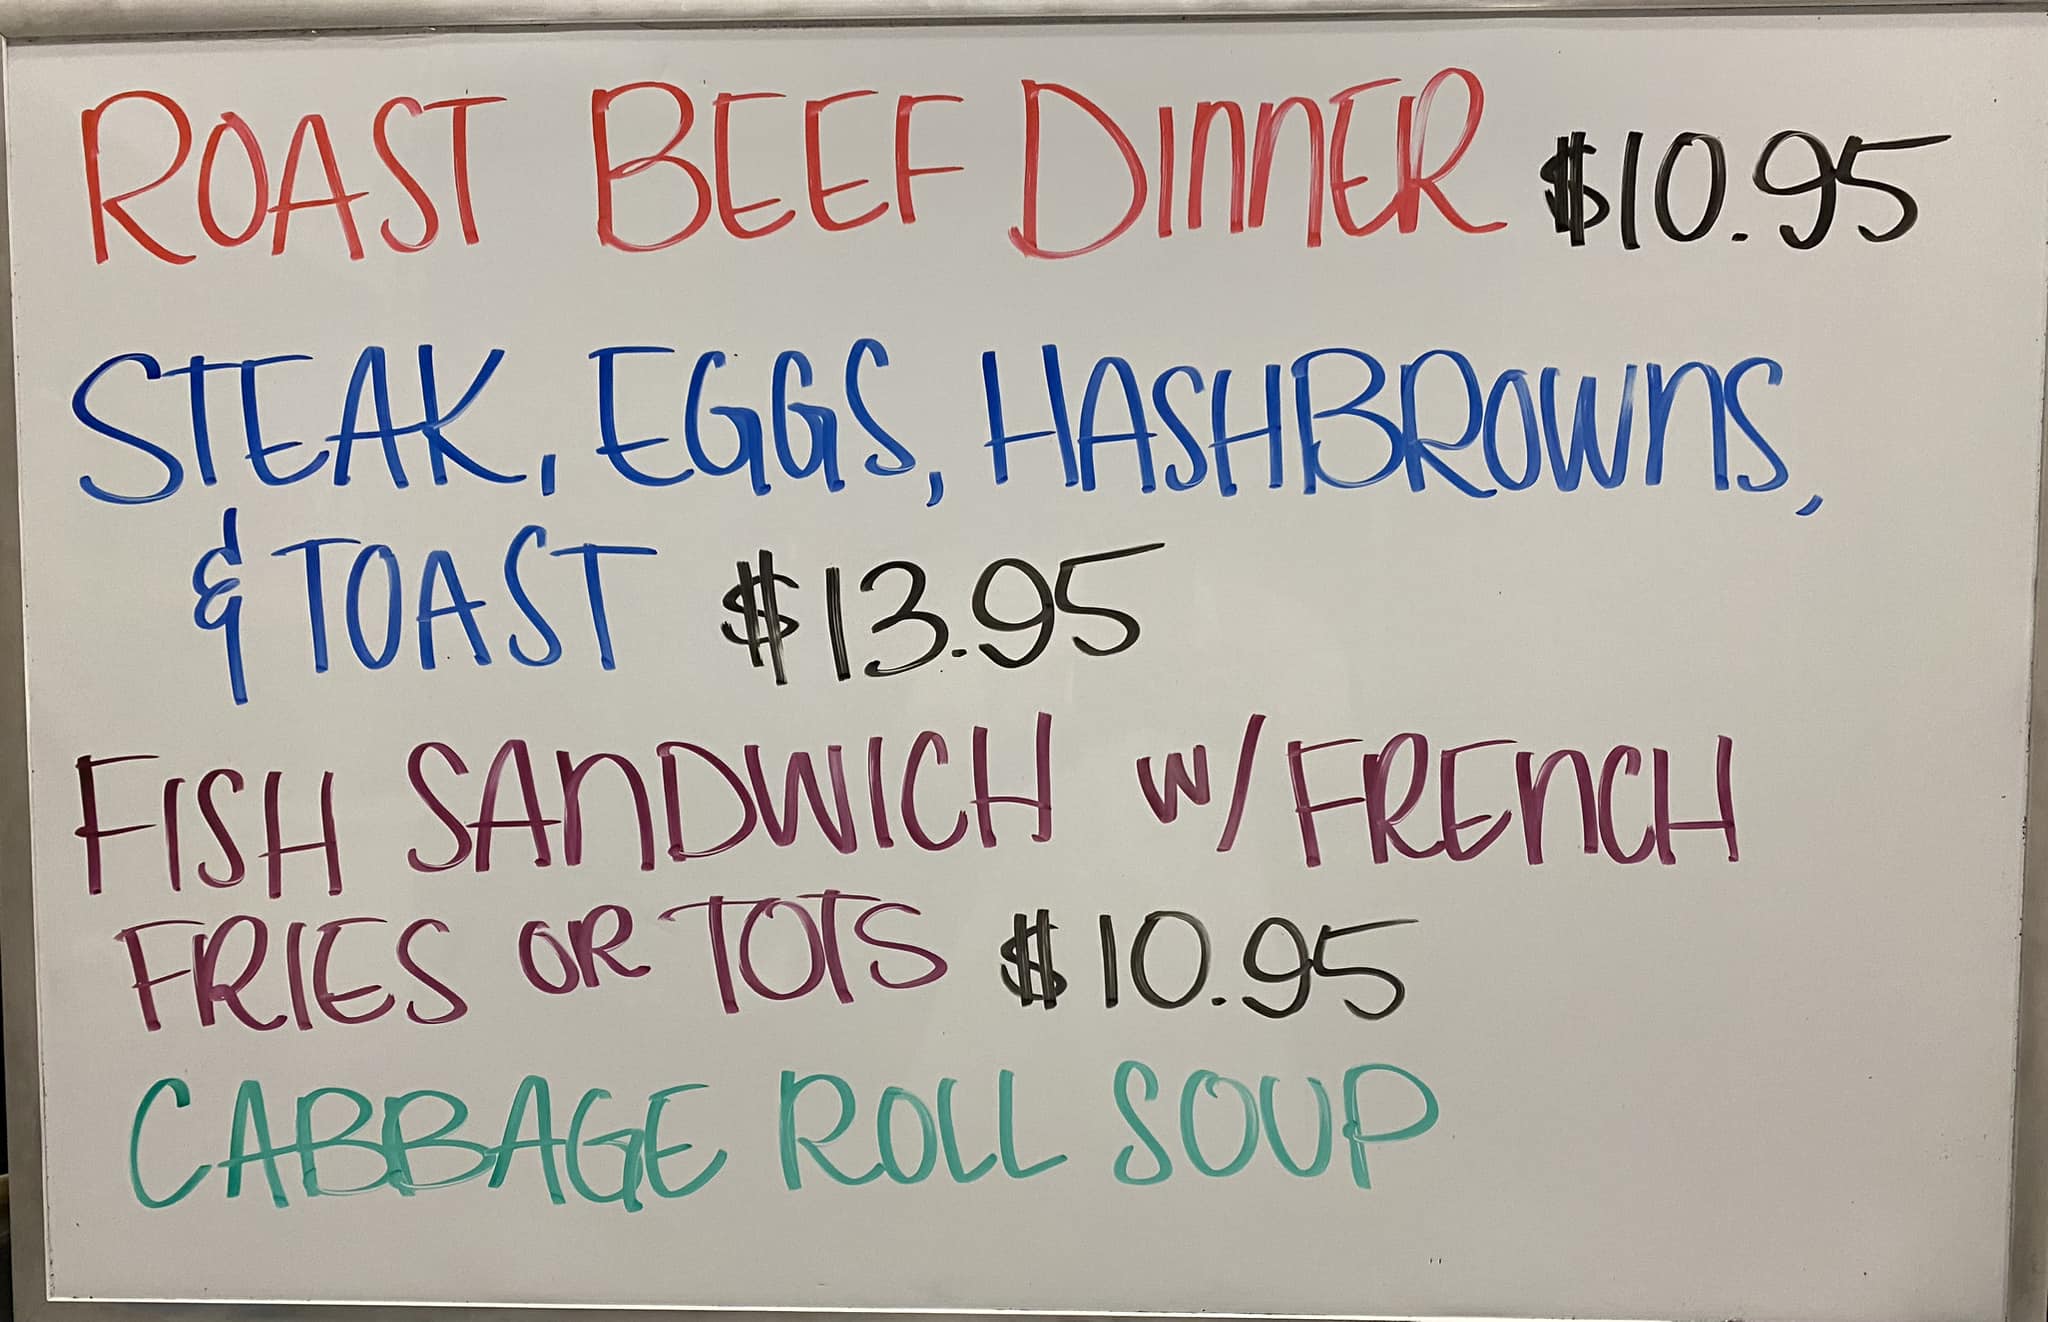 ROAST BEEF DINNER $10.95
STEAK, EGGS, HASHBROWNS,
& TOAST $13.95
FISH SANDWICH W/ FRENCH
FRIES OR TOTS $10.95
CABBAGE ROLL SOUP